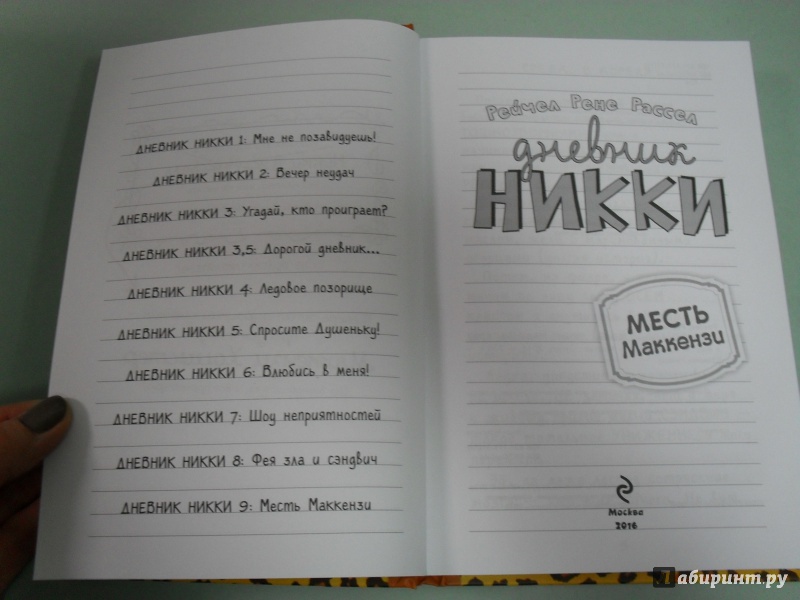 ДНЕВНИК НИККИ 1: Мне не позавидуешь!
ДНЕВНИК НИККИ 2: Вечер неудач
ДНЕВНИК НИККИ 3: Угадай, кто проиграет?
ДНЕВНИК НИККИ 3,5: Дорогой дневник...
ДНЕВНИК НИККИ 4: Ледовое позорище
ДНЕВНИК НИККИ 5: Спросите Душеньку!
ДНЕВНИК НИККИ 6: Влюбись в меня!
ДНЕВНИК НИККИ 7: Шоу неприятностей
ДНЕВНИК НИККИ 8: Фея зла и сэндвич
ДНЕВНИК НИККИ 9: Месть Маккензи
Рейчел Рене Рассел
дневник
НИККИ
МЕСТЬ
Маккензи
Москва
2016
Лабиринт.ру